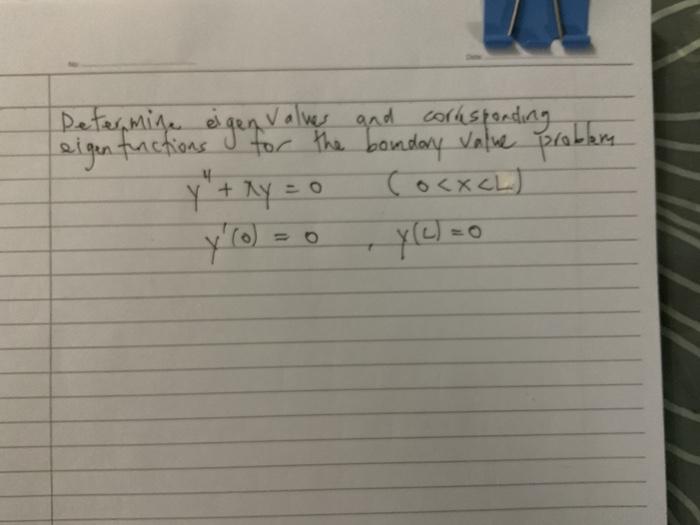 No
Date
Determine eigenvalues and corrisponding
eigenfunctions for the boundary value problem
y" + λy = 0 (0<x<L)
y'(0) = 0 , y(L) = 0